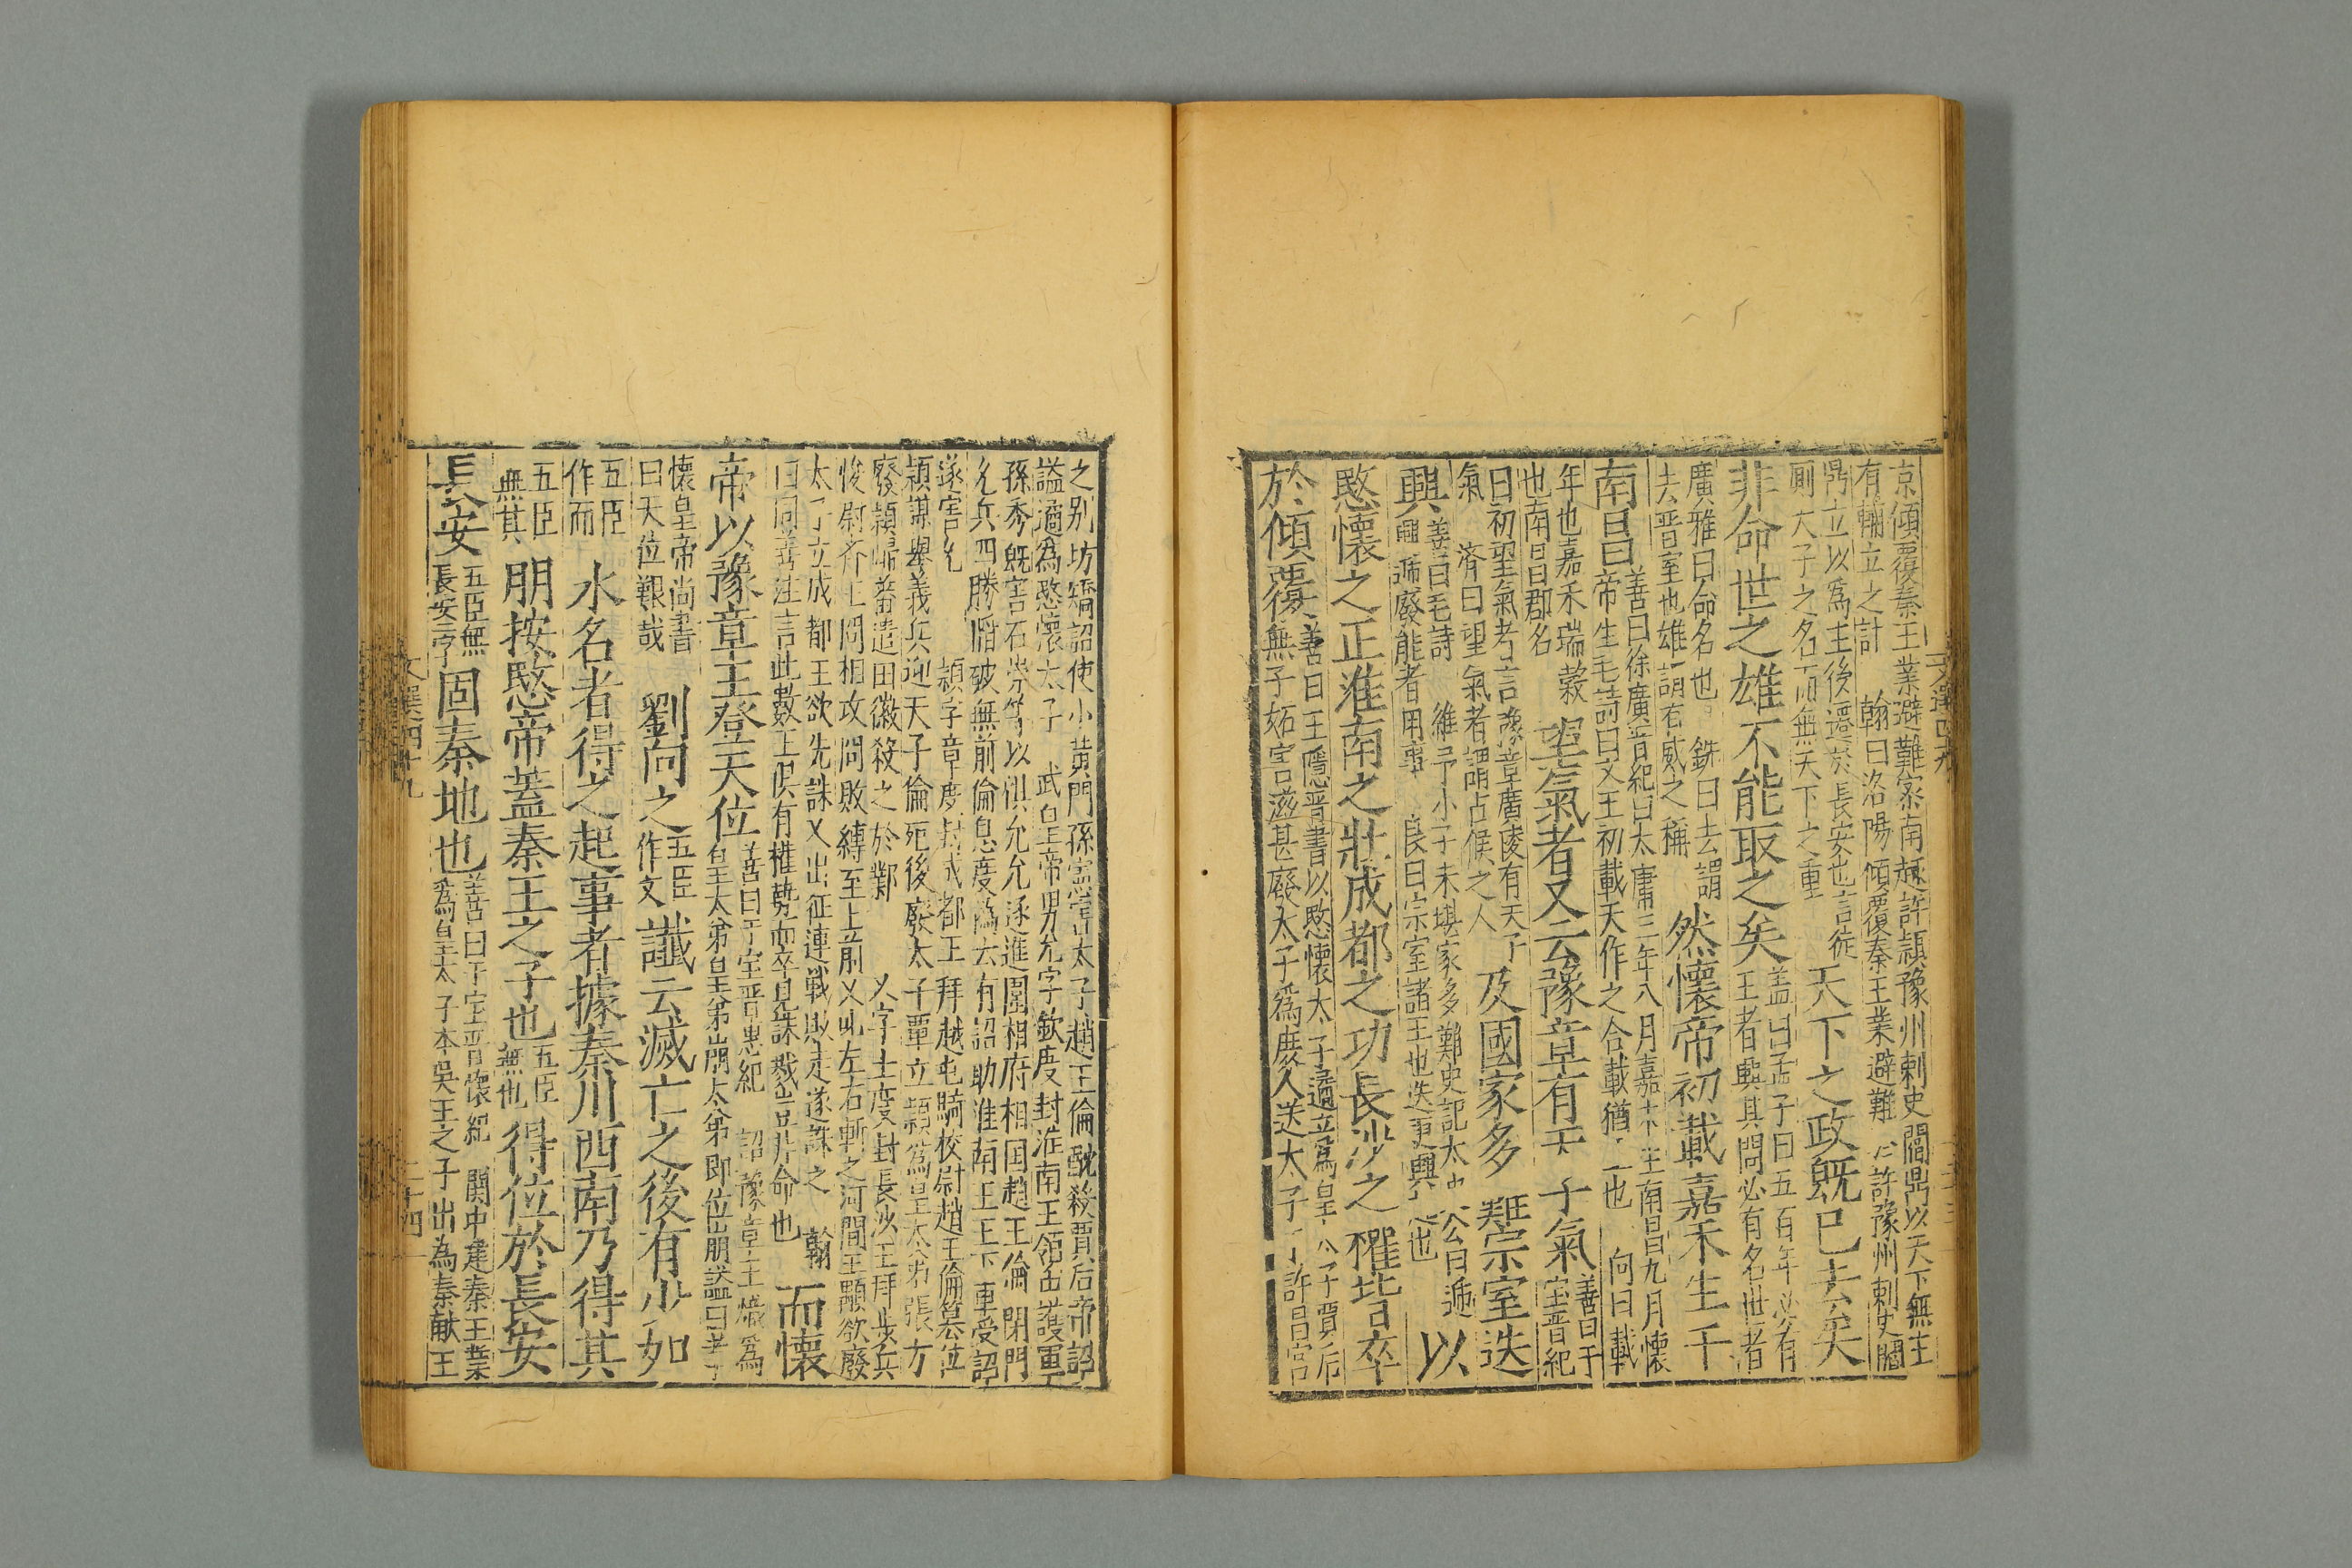 京傾覆秦王業避難密南趣許潁豫州刺史閻鼎以天下無主
有輔立之計 翰曰洛陽傾覆秦王業避難 許豫州刺史閻
鼎立以為主後遷於長安也言從
厠太子之名而無天下之重
天下之政既已去矣
非命世之雄不能取之矣
盖曰孟子曰五百年必有
王者興其間必有名世者
廣雅曰命名也 銑曰去謂
去晋室也雄謂有威之稱
然懷帝初載嘉禾生于
南昌
善曰徐廣晋紀曰太康三年八月嘉禾生南昌九月懷
帝生毛詩曰文王初載天作之合載猶 也 向曰載
年也嘉禾瑞穀
也南昌郡名
望氣者又云豫章有天子氣
善曰干
宝晋紀
曰初望氣者言豫章廣陵有天子
氣 済曰望氣者謂占候之人
及國家多難宗室迭
興
善曰毛詩 維予小子未堪家多難史記太史公曰遞
興遞廢能者用事 良曰宗室諸王也迭更興 也
以
愍懷之正淮南之壯成都之功長沙之權皆卒
於傾覆
善曰王隱晋書以愍懷太子遹立為皇太子賈后
無子妬害滋甚廢太子為庶人送太子 許昌宮
文選四十九
之别坊矯詔使小黄門孫慮害太子趙王倫酖殺賈后帝詔
謚遹為愍懷太子 武皇帝男允字欽度封淮南王領中護軍
孫秀既害石崇等以懼允允遂進圍相府相国趙王倫閉門
允兵四勝 破無前倫息虔偽云有詔助淮南王王下車受詔
遂害允 穎字章度封成都王拜越屯騎校尉趙王倫篡位
穎謀舉義兵迎天子倫死後廢太子覃立穎為皇太弟張方
廢穎歸蕃遣田徽殺之於鄴 乂字士度封長沙王拜步兵
後尉齐王冏相攻冏敗縛至上前乂叱左右斬之河間王顒欲廢
太子立成都王欲先誅乂出征連戰敗走遂誅之 翰
曰同善注言此數王俱有權勢而卒見誅戮豈非命也
而懷
帝以豫章王登天位
善曰干宝晋惠紀 詔豫章王熾為
皇太弟皇弟崩太弟即位崩謚曰孝
懷皇帝尚書
曰天位艱哉
劉向之
五臣
作文
讖云滅亡之後有少如
五臣
作而
水名者得之起事者據秦川西南乃得其
五臣
無其
朋按愍帝蓋秦王之子也
五臣
無也
得位於長安
長安
五臣無
長安二字
固秦地也
善曰干宝晋懷紀 関中建秦王業
為皇太子本吳王之子出為秦献王
文選四十九
二十四